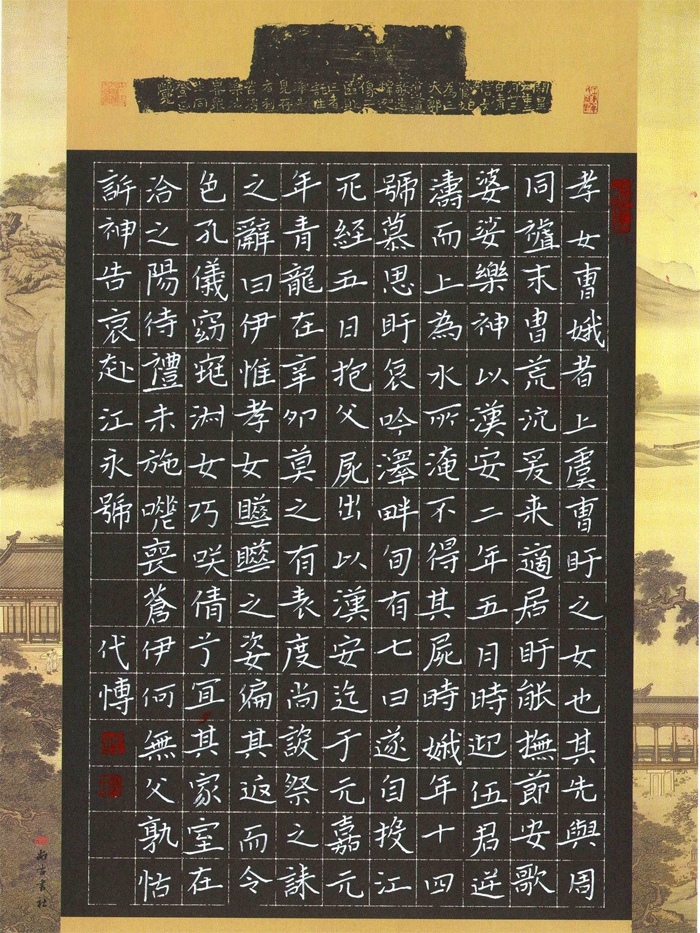 孝女曺娥者上虞曺盱之女也其先與周
同末曺荒沉爰来適居盱能撫節安歌
婆娑樂神以漢安二年五月時迎伍君逆
濤而上為水所淹不得其屍時娥年十四
號慕思盱哀吟澤畔旬有七日遂自投江
死經五日抱父屍出以漢安迄于元嘉元
年青龍在辛卯莫之有表度尚設祭之誄
之辭曰伊惟孝女曄曄之姿偏其返而令
色孔儀窈窕淑女巧咲倩兮宜其家室在
洽之陽待禮未施嗟喪蒼伊何無父孰怙
訴神告哀赴江永號
代愽